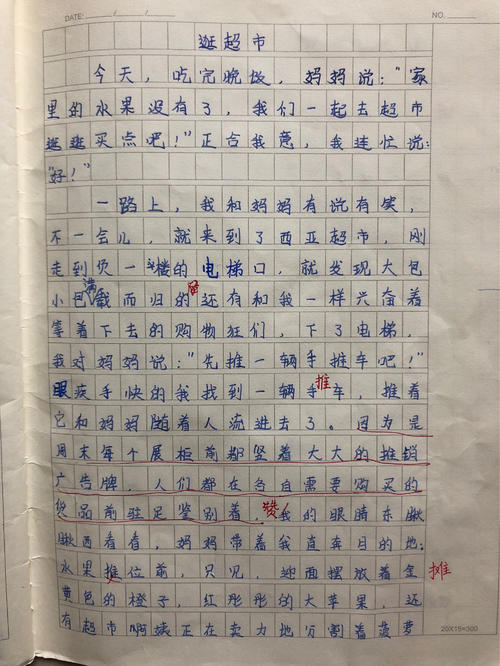 DATE: / /
NO.
逛超市
今天，吃完晚饭，妈妈说："家
里的水果没有了，我们一起去超市
逛逛买点吧！"正合我意，我连忙说：
"好！"
一路上，我和妈妈有说有笑，
不一会儿，就来到了西亚超市，刚
走到负一楼的电梯口，就发现大包
小包满载而归的还有和我一样兴奋着
等着下去的购物狂们，下了电梯，
我对妈妈说："先推一辆手推车吧！"
眼疾手快的我找到一辆手推车，推着
它和妈妈随着人流进去了。因为是
周末每个展柜前都竖着大大的推销
广告牌，人们都在各自需要购买的
货品前驻足鉴别着，我的眼睛东瞅
瞅西看看，妈妈带着我直奔目的地：
水果摊位前，只见，迎面摆放着金
摊
黄色的橙子，红彤彤的大苹果，还
有超市啊姨正在卖力地分割着菠萝
20X15=300